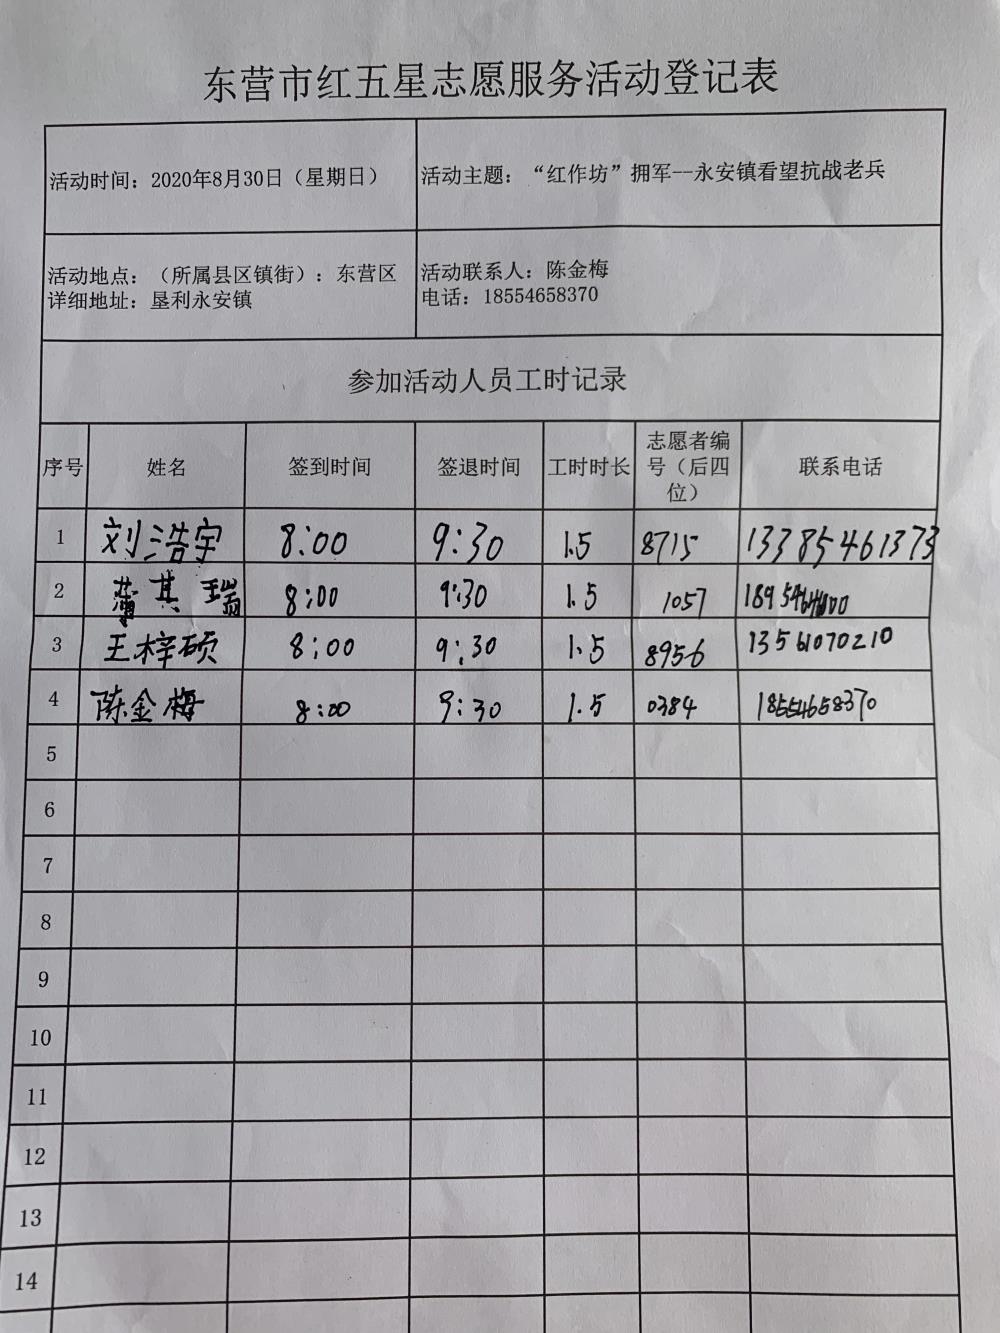 东营市红五星志愿服务活动登记表
活动时间：2020年8月30日（星期日）
活动主题：“红作坊”拥军--永安镇看望抗战老兵
活动地点：（所属县区镇街）：东营区
详细地址：垦利永安镇
活动联系人：陈金梅
电话：18554658370
参加活动人员工时记录
序号 姓名 签到时间 签退时间 工时时长 志愿者编号（后四位） 联系电话
1 刘浩宇 8:00 9:30 1.5 8715 13385461373
2 薄其瑞 8:00 9:30 1.5 1057
3 王梓硕 8:00 9:30 1.5 8956 13561070210
4 陈金梅 8:00 9:30 1.5 0384 18554658370
5
6
7
8
9
10
11
12
13
14